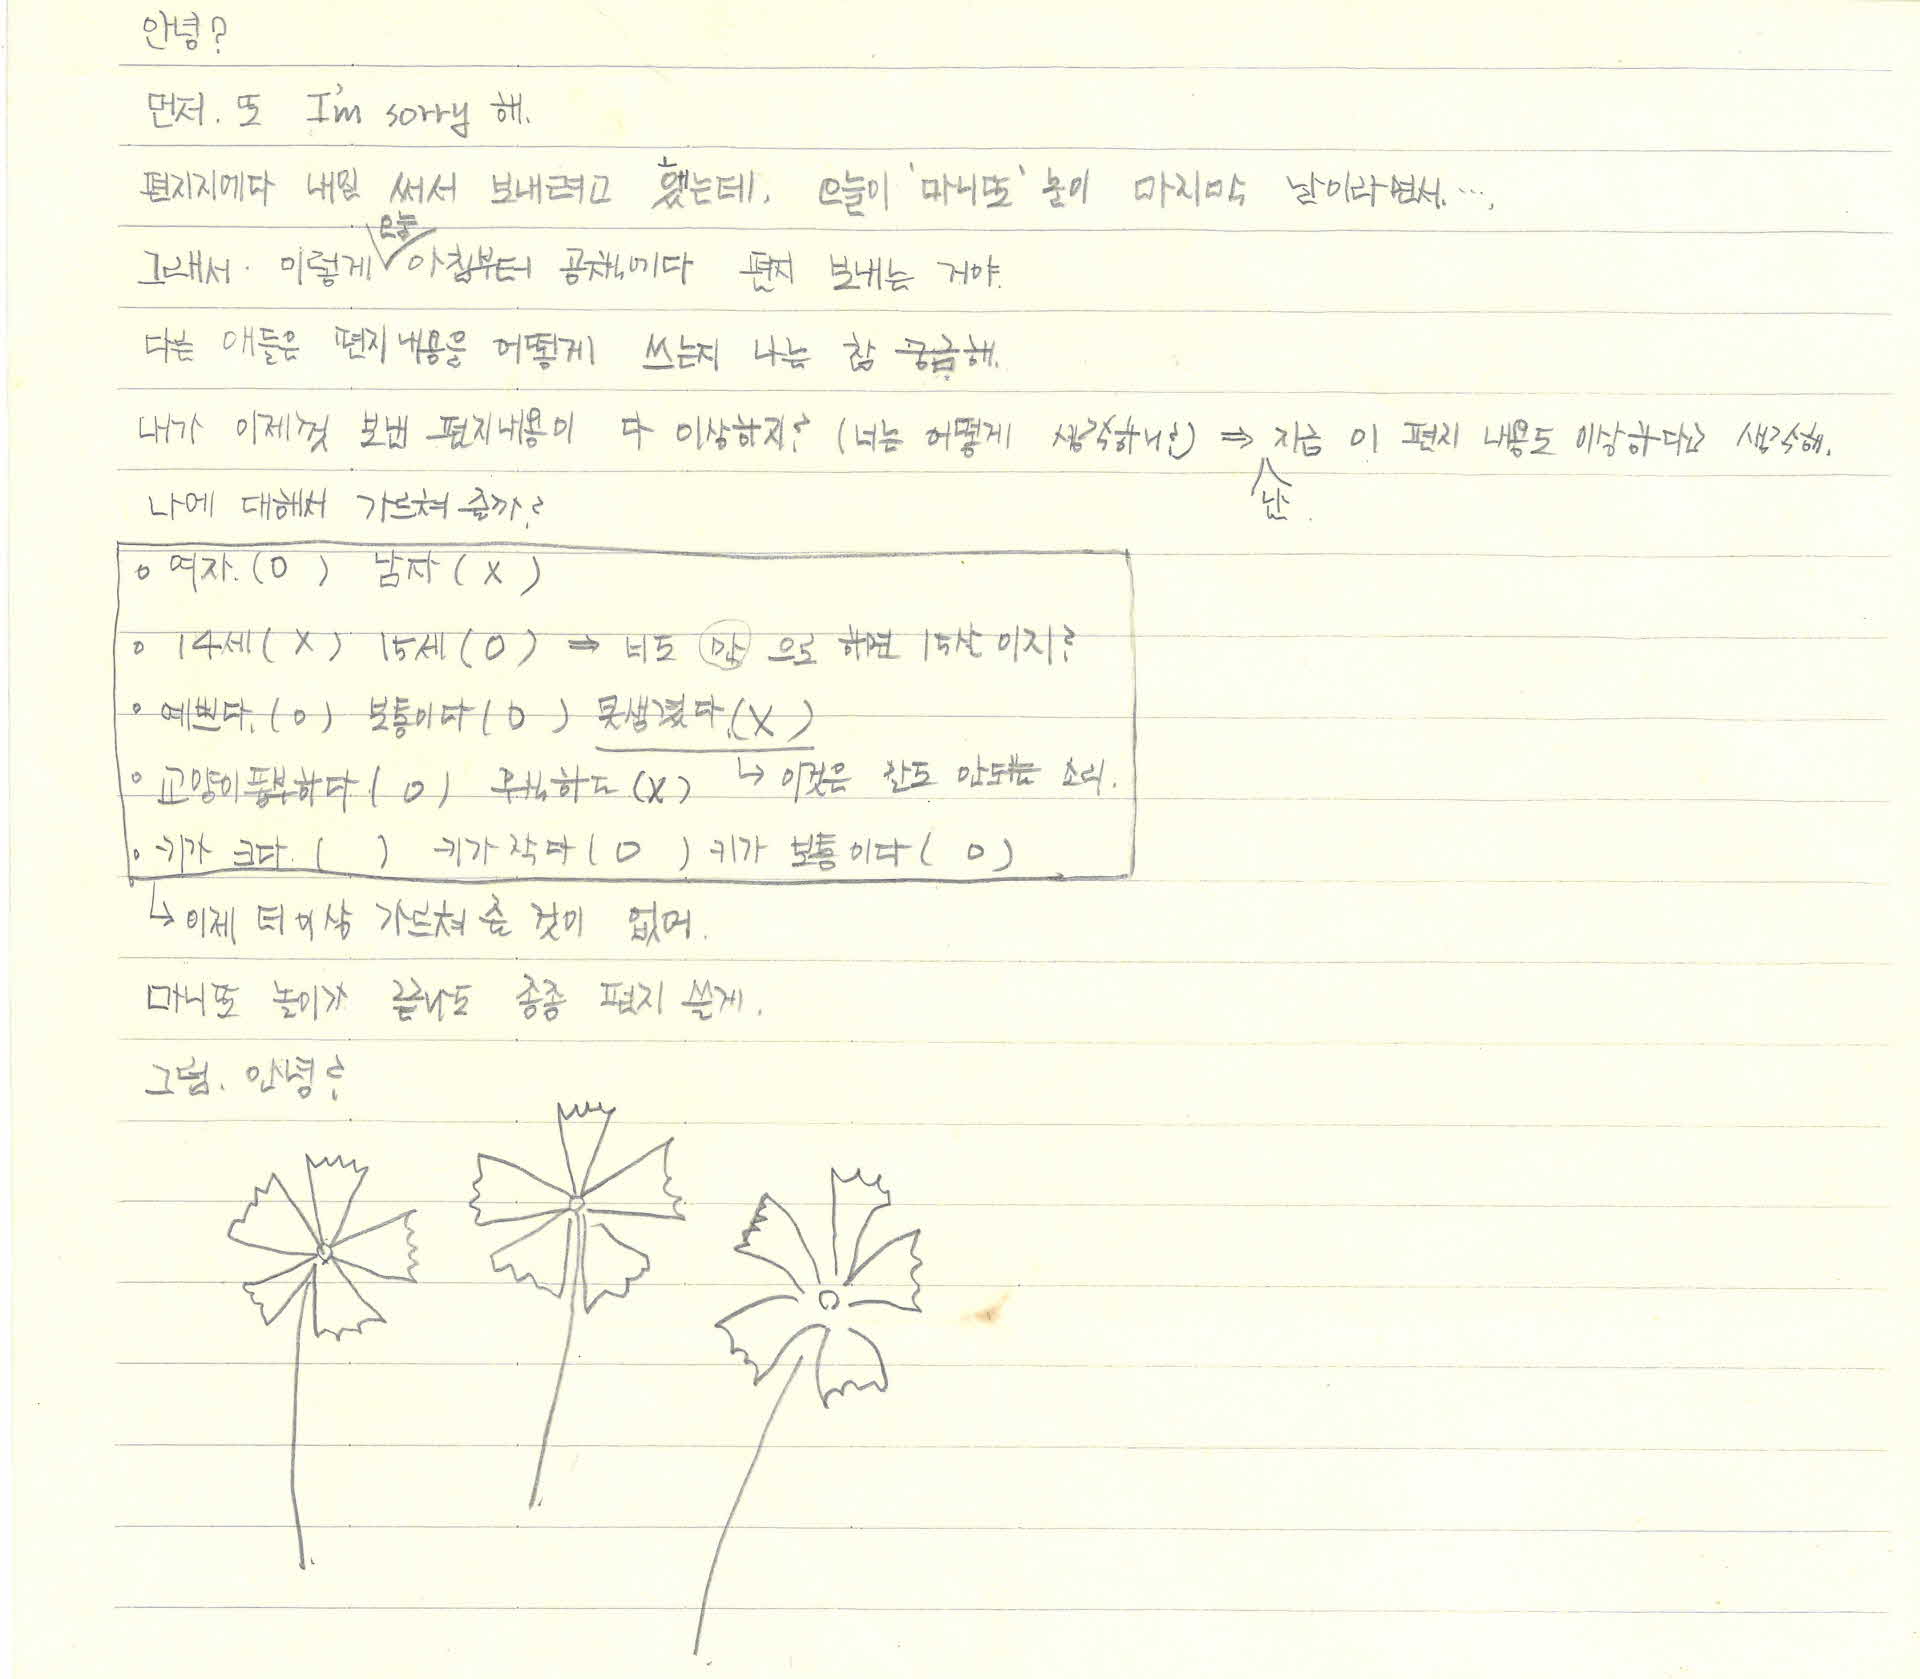 안녕?
먼저. 또 I'm sorry 해.
편지지에다 내일 써서 보내려고 했는데, 오늘이 '마니또' 놀이 마지막 날이라면서.….
그래서. 이렇게 오늘 아침부터 공책에다 편지 보내는 거야.
다른 애들은 편지내용을 어떻게 쓰는지 나는 참 궁금해.
내가 이제껏 보낸 편지내용이 다 이상하지? (너는 어떻게 생각하니?) ⇒ 난 지금 이 편지 내용도 이상하다고 생각해.
나에 대해서 가르쳐 줄까?
◦ 여자.(O) 남자(X)
◦ 14세(X) 15세(O) ⇒ 너도 만으로 하면 15살 이지?
◦ 예쁘다.(O) 보통이다(O) 못생겼다.(X)
◦ 교양이풍부하다(O) (X) ↳ 이것은 안되는 소리.
◦ 키가 크다.( ) 키가 작다(O) 키가 보통이다(O)
↳ 이제 더이상 가르쳐 줄 것이 없어.
마니또 놀이가 끝나도 종종 편지 쓸게.
그럼. 안녕?